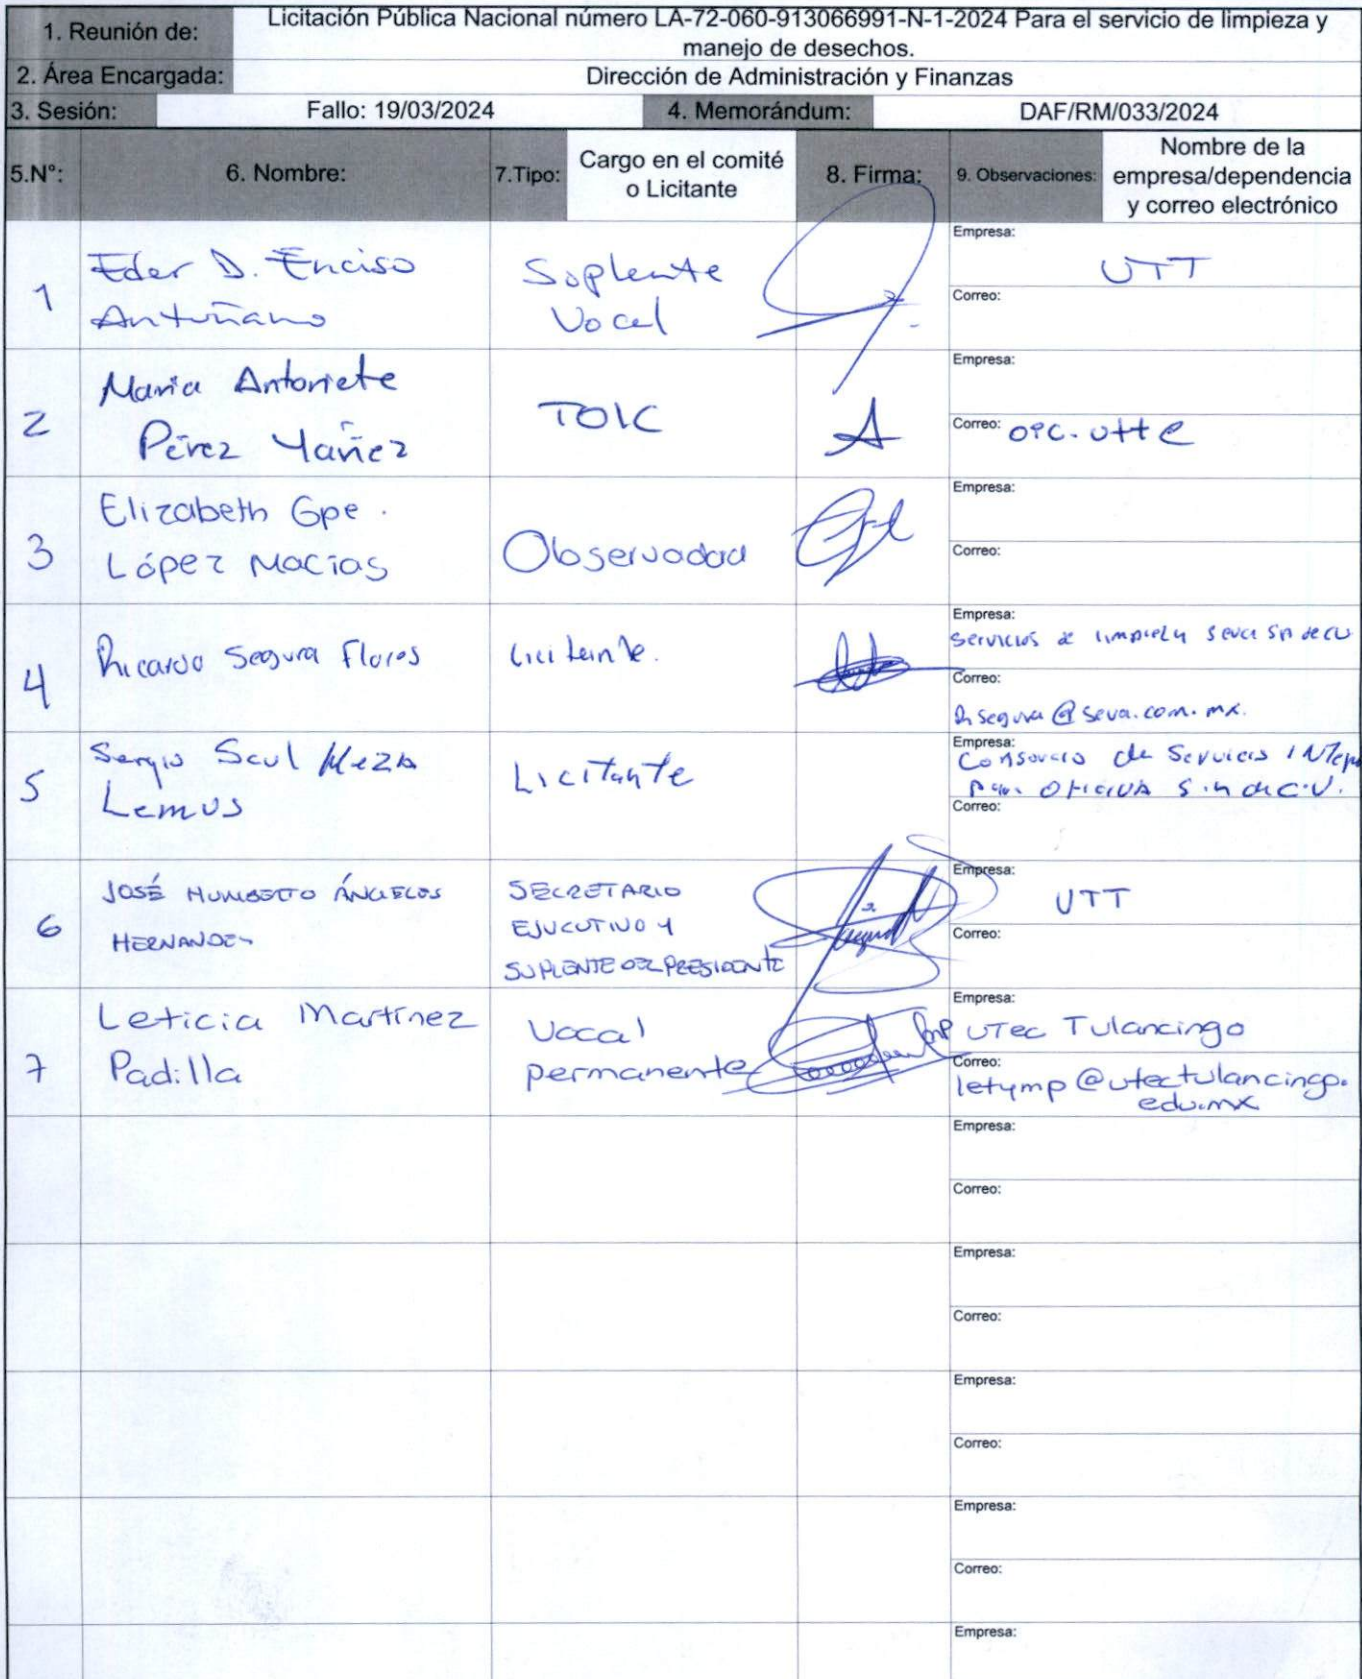 1. Reunión de:
Licitación Pública Nacional número LA-72-060-913066991-N-1-2024 Para el servicio de limpieza y
manejo de desechos.
2. Área Encargada:
Dirección de Administración y Finanzas
3. Sesión:
Fallo: 19/03/2024
4. Memorándum:
DAF/RM/033/2024
5.N°:
6. Nombre:
7.Tipo:
Cargo en el comité
o Licitante
8. Firma:
9. Observaciones:
Nombre de la
empresa/dependencia
y correo electrónico
1
Eder D. Enciso
Antuñano
Suplente
Vocal
Empresa:
UTT
Correo:
2
Maria Antoniete
Pérez Yañez
TOIC
Empresa:
Correo:
oic.utt@
3
Elizabeth Gpe.
López Macías
Observadad
Empresa:
Correo:
4
Ricardo Segura Flores
Licitante.
Empresa:
Servicios de limpieza seva
Correo:
Rsegura@seva.com.mx.
5
Sergio Saul Meza
Lemus
Licitante
Empresa:
Consorcio de Servicios
Para Oficina S.
Correo:
6
JOSÉ HUMBERTO ÁNGELES
HERNANDEZ
SECRETARIO
EJECUTIVO Y
SUPLENTE DEL PRESIDENTE
Empresa:
UTT
Correo:
7
Leticia Martínez
Padilla
Vocal
permanente
Empresa:
UTec Tulancingo
Correo:
letymp@utectulancingo.
edu.mx
Empresa:
Correo:
Empresa:
Correo:
Empresa:
Correo:
Empresa:
Correo:
Empresa: